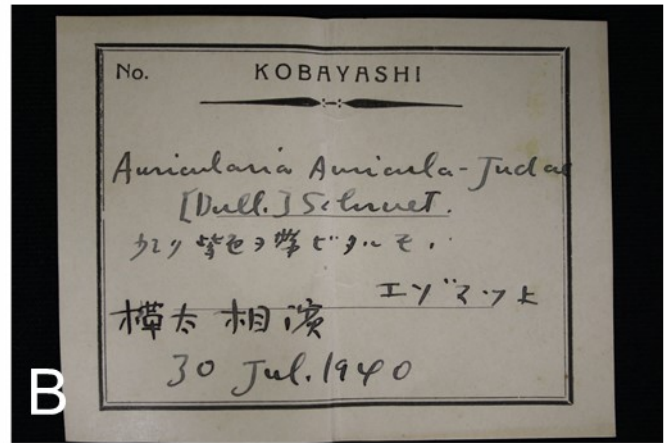 No. KOBAYASHI
Auricularia Auricula-Judae
[Bull.] Schroet.
紫色ヲ帯ビタルモ
エゾマツ上
樺太 相濱
30 Jul. 1940
B